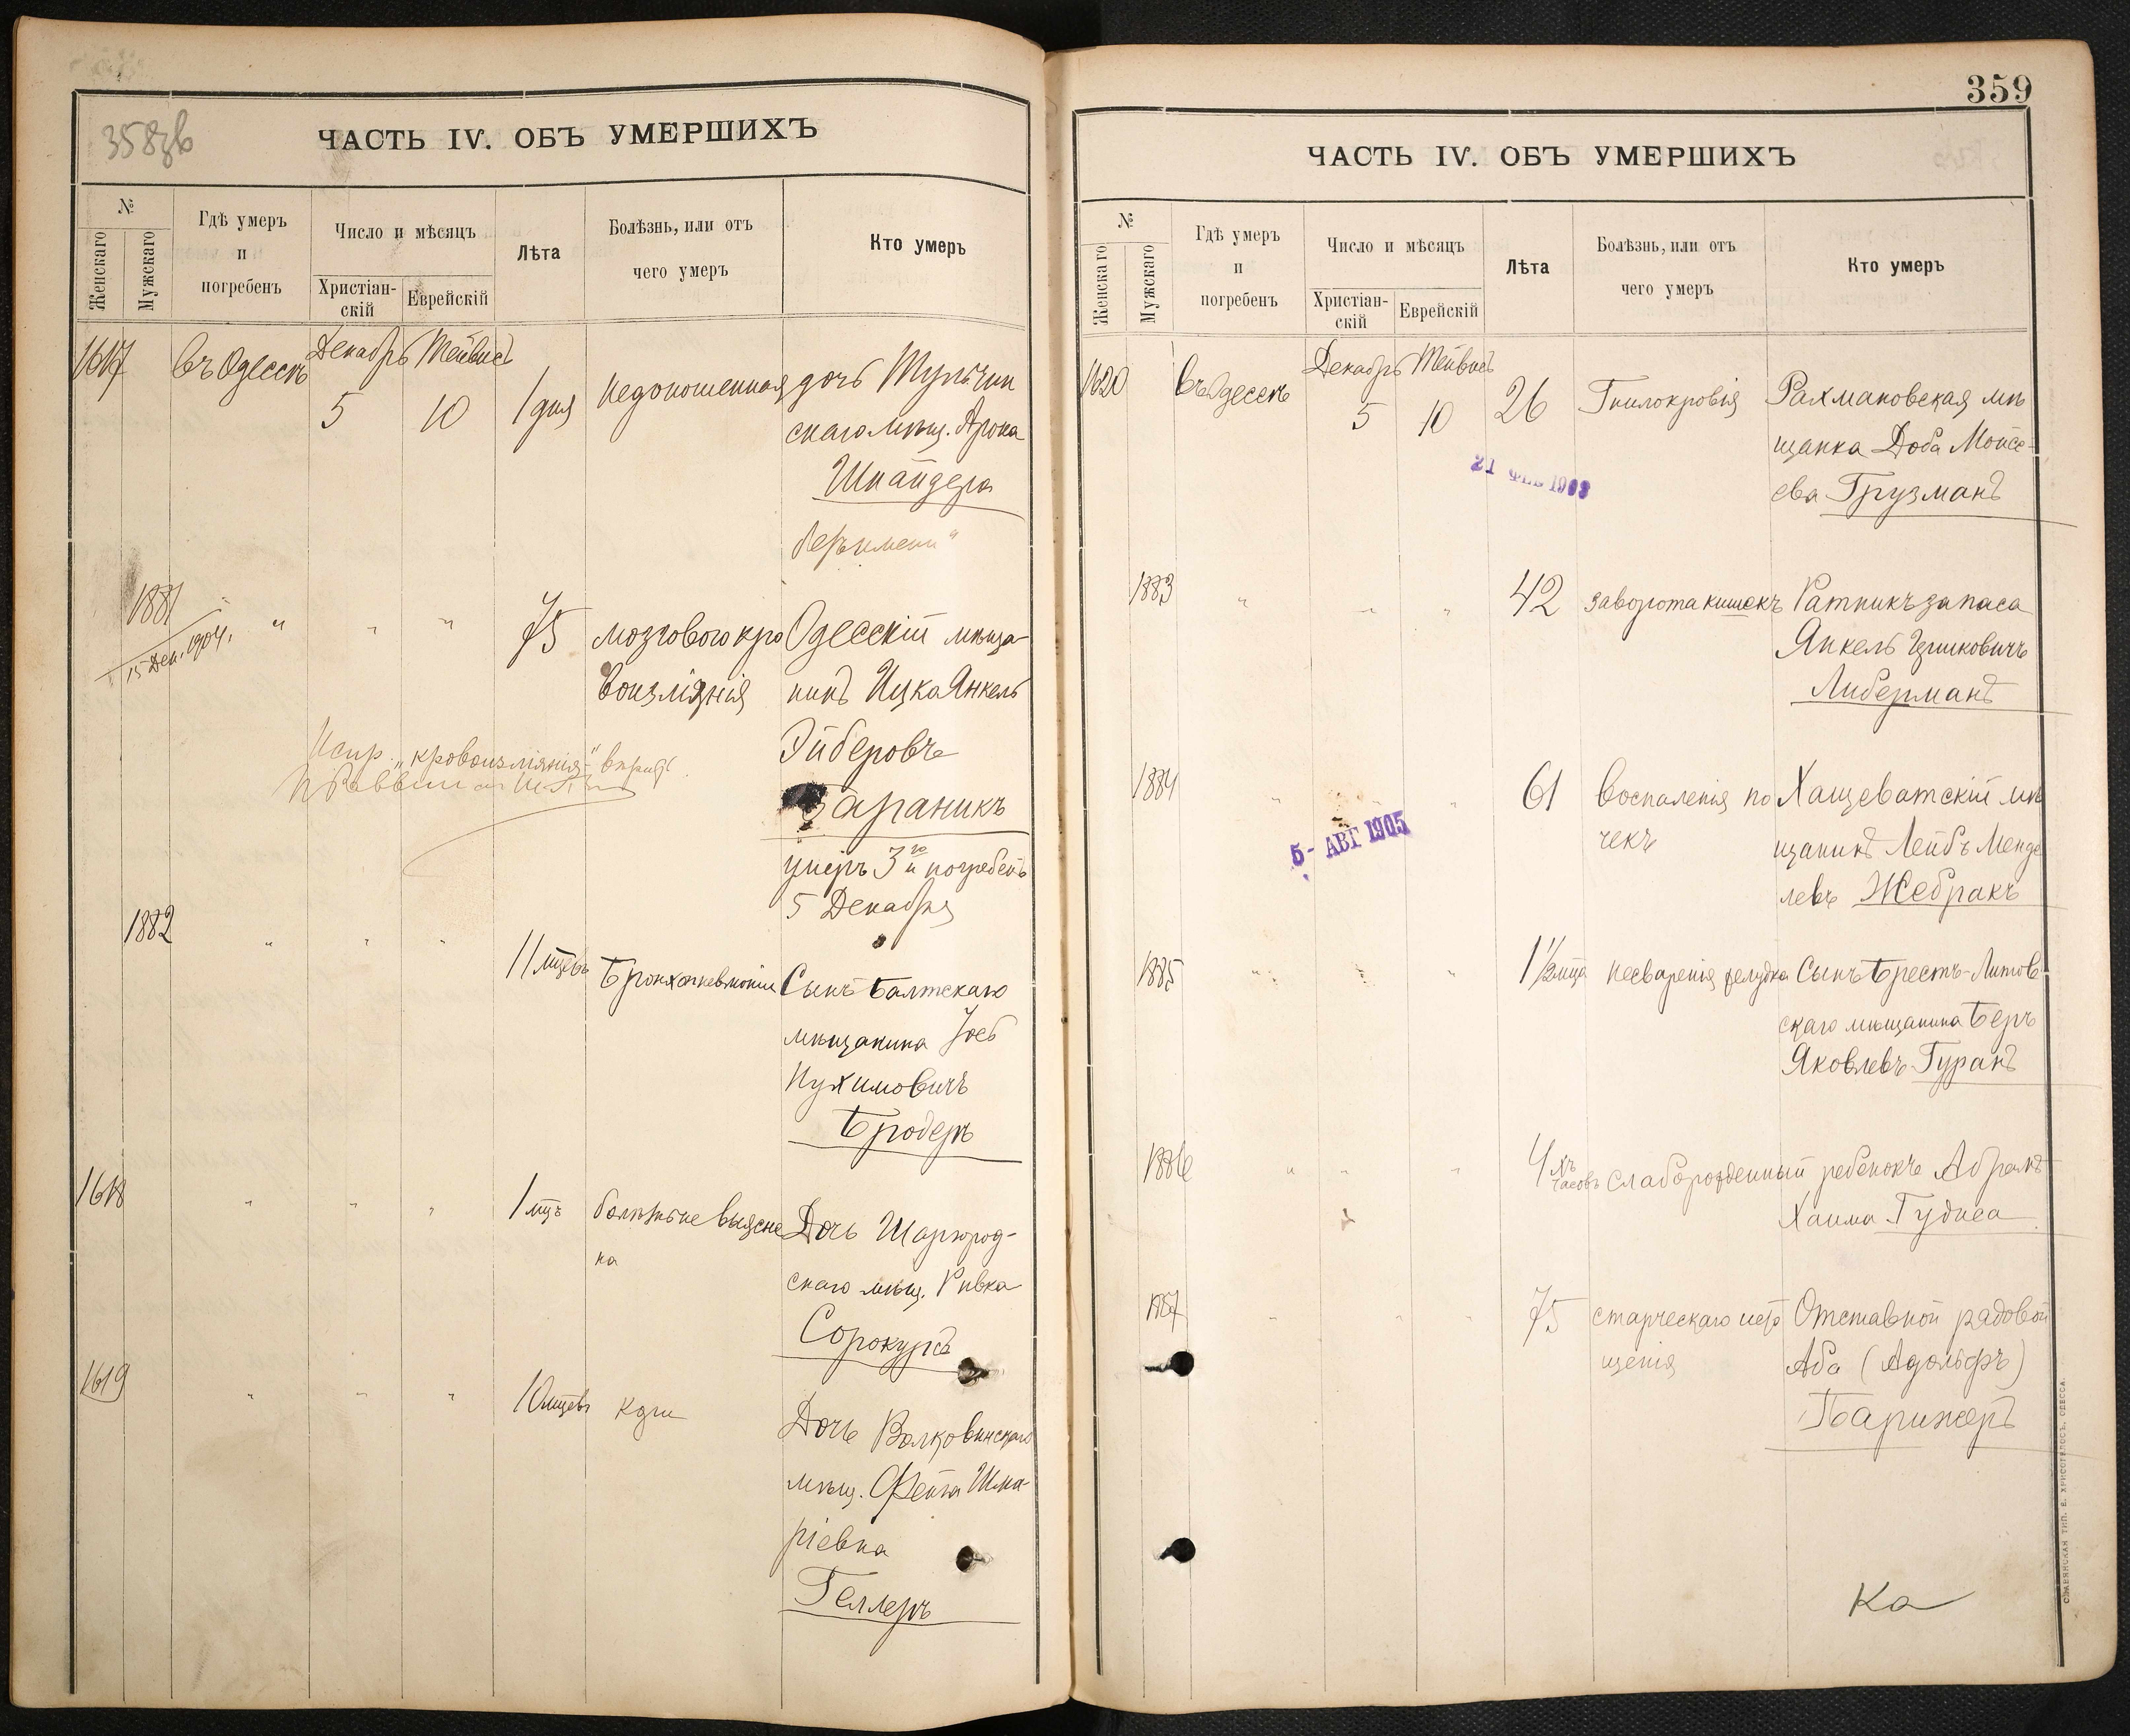 358зв
ЧАСТЬ IV. ОБЪ УМЕРШИХЪ
№
Женскаго
Мужскаго
Гдѣ умеръ
и
погребенъ
Число и мѣсяцъ
Христіан-
скій
Еврейскій
Лѣта
Болѣзнь, или отъ
чего умеръ
Кто умеръ
1617
Въ Одессѣ
Декабрь
5
Тейвисъ
10
1 дня
недоношенная
дочь Тульчин
скаго мѣщ. Арона
Шнайдера
безъ имени"
1881
15 Дек. 1904.
" " "
75
мозгового кро
воизліянія
Одесскій мѣща-
нинъ Ицка Янкель
Эйберовъ
Тараникъ
умеръ 3го и погребенъ
5 Декабря
Испр. „кровоизліянія" вѣрно
Раввинъ
1882
" " "
11 мцевъ
Бронхопневмоніи
Сынъ Балтскаго
мѣщанина Іосъ
Нухимовичъ
Бродеръ
1618
" " "
1 мцъ
болѣзнь не выясне
на
Дочь Шаргород-
скаго мѣщ. Ривка
Сорокуръ
1619
" " "
10 мцевъ
Кори
Дочь Волковинскаго
мѣщ. Фейга Шма-
ріевна
Геллеръ
359
ЧАСТЬ IV. ОБЪ УМЕРШИХЪ
№
Женскаго
Мужскаго
Гдѣ умеръ
и
погребенъ
Число и мѣсяцъ
Христіан-
скій
Еврейскій
Лѣта
Болѣзнь, или отъ
чего умеръ
Кто умеръ
1620
Въ Одессѣ
Декабрь
5
Тейвисъ
10
26
Гнилокровія
Рахмановская мѣ
щанка Доба Мойсе-
ева Грузманъ
21 ФЕВ 1903
1883
" " "
42
заворота кишекъ
Ратникъ запаса
Янкель Ицковичъ
Либерманъ
1884
" "
61
Воспаленія по
чекъ
Хащеватскій мѣ
щанинъ Лейбъ Менде
левъ Жебракъ
5- АВГ 1905
1885
" " "
1 1/2 мца
несваренія желудка
Сынъ Брестъ-Литов
скаго мѣщанина Беръ
Яковлевъ Гуранъ
1886
" " "
4хъ часовъ
слаборожденный ребенокъ Абрамъ
Хаима Гудиса
1887
" " "
75
старческаго исто
щенія
Отставной рядовой
Аба (Адольфъ)
Барижеръ
Ка
СЛАВЯНСКАЯ ТИП. Е. ХРИСОГЕЛОСЪ. ОДЕССА.